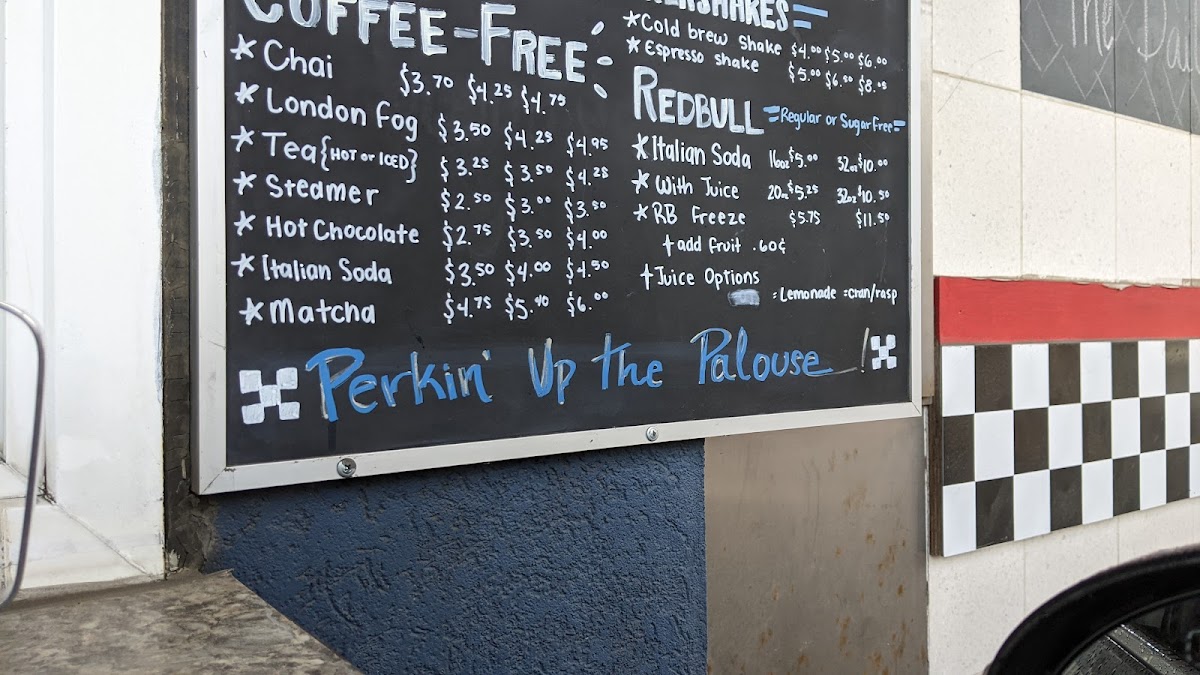 COFFEE-FREE
*Chai $3.70 $4.25 $4.75
*London Fog $3.50 $4.25 $4.95
*Tea {HOT or ICED} $3.25 $3.50 $4.25
*Steamer $2.50 $3.00 $3.50
*Hot Chocolate $2.75 $3.50 $4.00
*Italian Soda $3.50 $4.00 $4.50
*Matcha $4.75 $5.40 $6.00
*Cold brew Shake $4.00 $5.00 $6.00
*Espresso shake $5.00 $6.00 $8.05
REDBULL =Regular or Sugar Free=
*Italian Soda 16oz $5.00 32oz $10.00
*With Juice 20oz $5.25 32oz $10.50
*RB Freeze $5.75 $11.50
†add fruit .60¢
†Juice Options
=Lemonade =cran/rasp
Perkin' Up The Palouse!
The